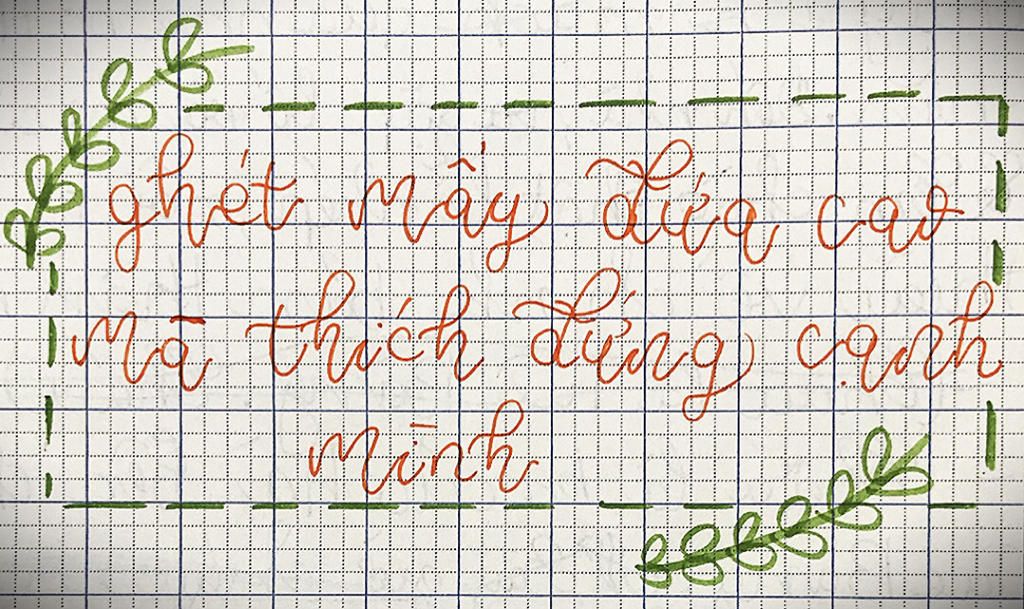 ghét mấy đứa cao
mà thích đứng cạnh
mình